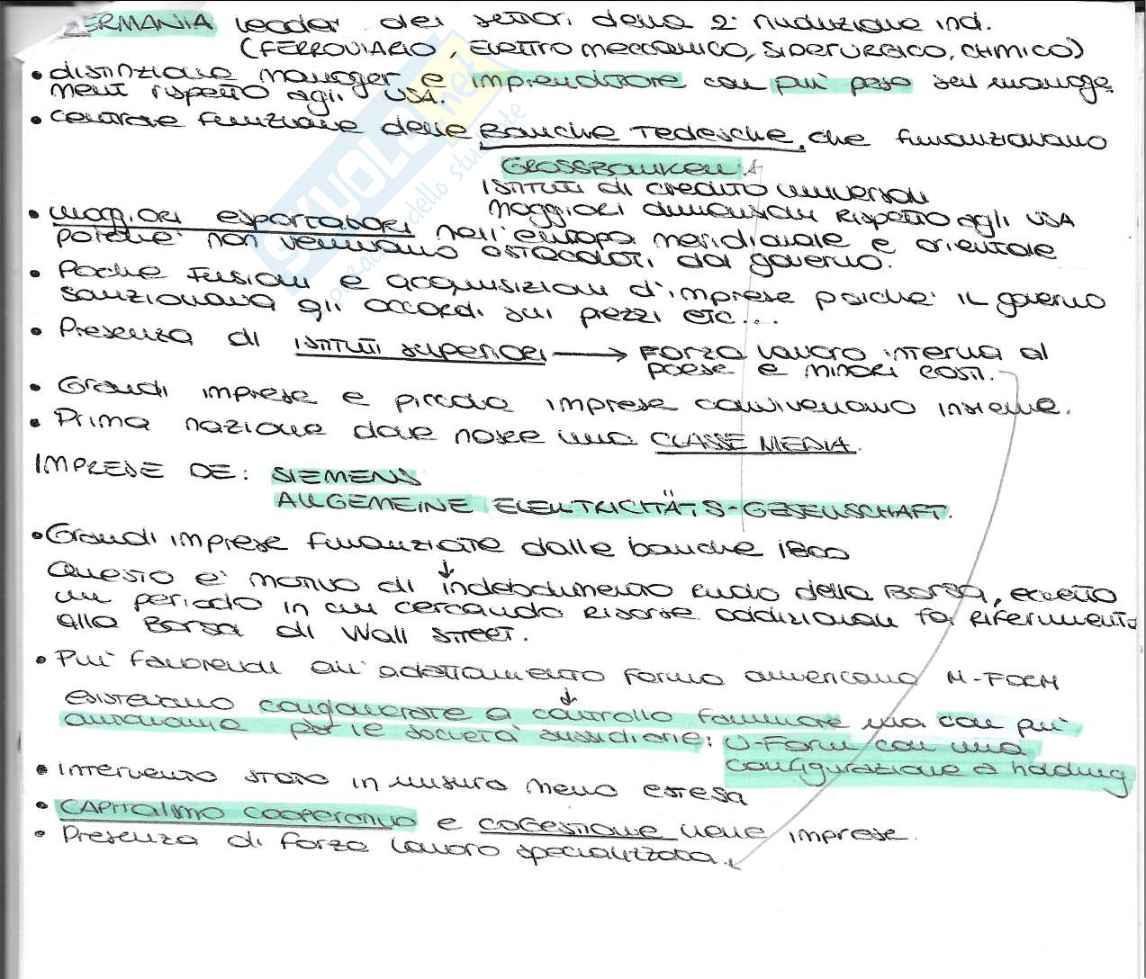 GERMANIA leader dei settori della 2ª rivoluzione ind.
(FERROVIARIO, ELETTROMECCANICO, SIDERURGICO, CHIMICO)
• distinzione manager e imprenditore con più peso sul manage
ment rispetto agli USA.
• centrale funzione delle Banche Tedesche, che finanziavano
GROSSBANKEN:
ISTITUTI di credito universali
Maggiori dimensioni rispetto agli USA
• Maggiori esportatori nell'europa meridionale e orientale
poiche' non venivano ostacolati dal governo.
• Poche fusioni e acquisizioni d'imprese poiche' il governo
sanzionava gli accordi sui prezzi etc...
• Presenza di istituti superiori → FORZA lavoro interna al
paese e minori costi.
• Grandi imprese e piccole imprese convivevano insieme.
• Prima nazione dove nasce una CLASSE MEDIA.
IMPRESE DE: SIEMENS
ALLGEMEINE ELEKTRICITÄTS-GESELLSCHAFT.
• Grandi imprese finanziate dalle banche 1800
Questo e' motivo di indebolimento ruolo della Borsa, eccetto
un periodo in cui cercando risorse addizionali fa riferimento
alla Borsa di Wall Street.
• Piu' favorevoli all'adattamento forma americana M-FORM
esistevano conglomerate a controllo familiare ma con piu'
autonomie per le societa' sussidiarie: U-Form con una
configurazione a holding
• Intervento stato in misura meno estesa
• CAPITALISMO COOPERATIVO e COGESTIONE nelle imprese.
• Presenza di forza lavoro specializzata.
SKUOLA.net